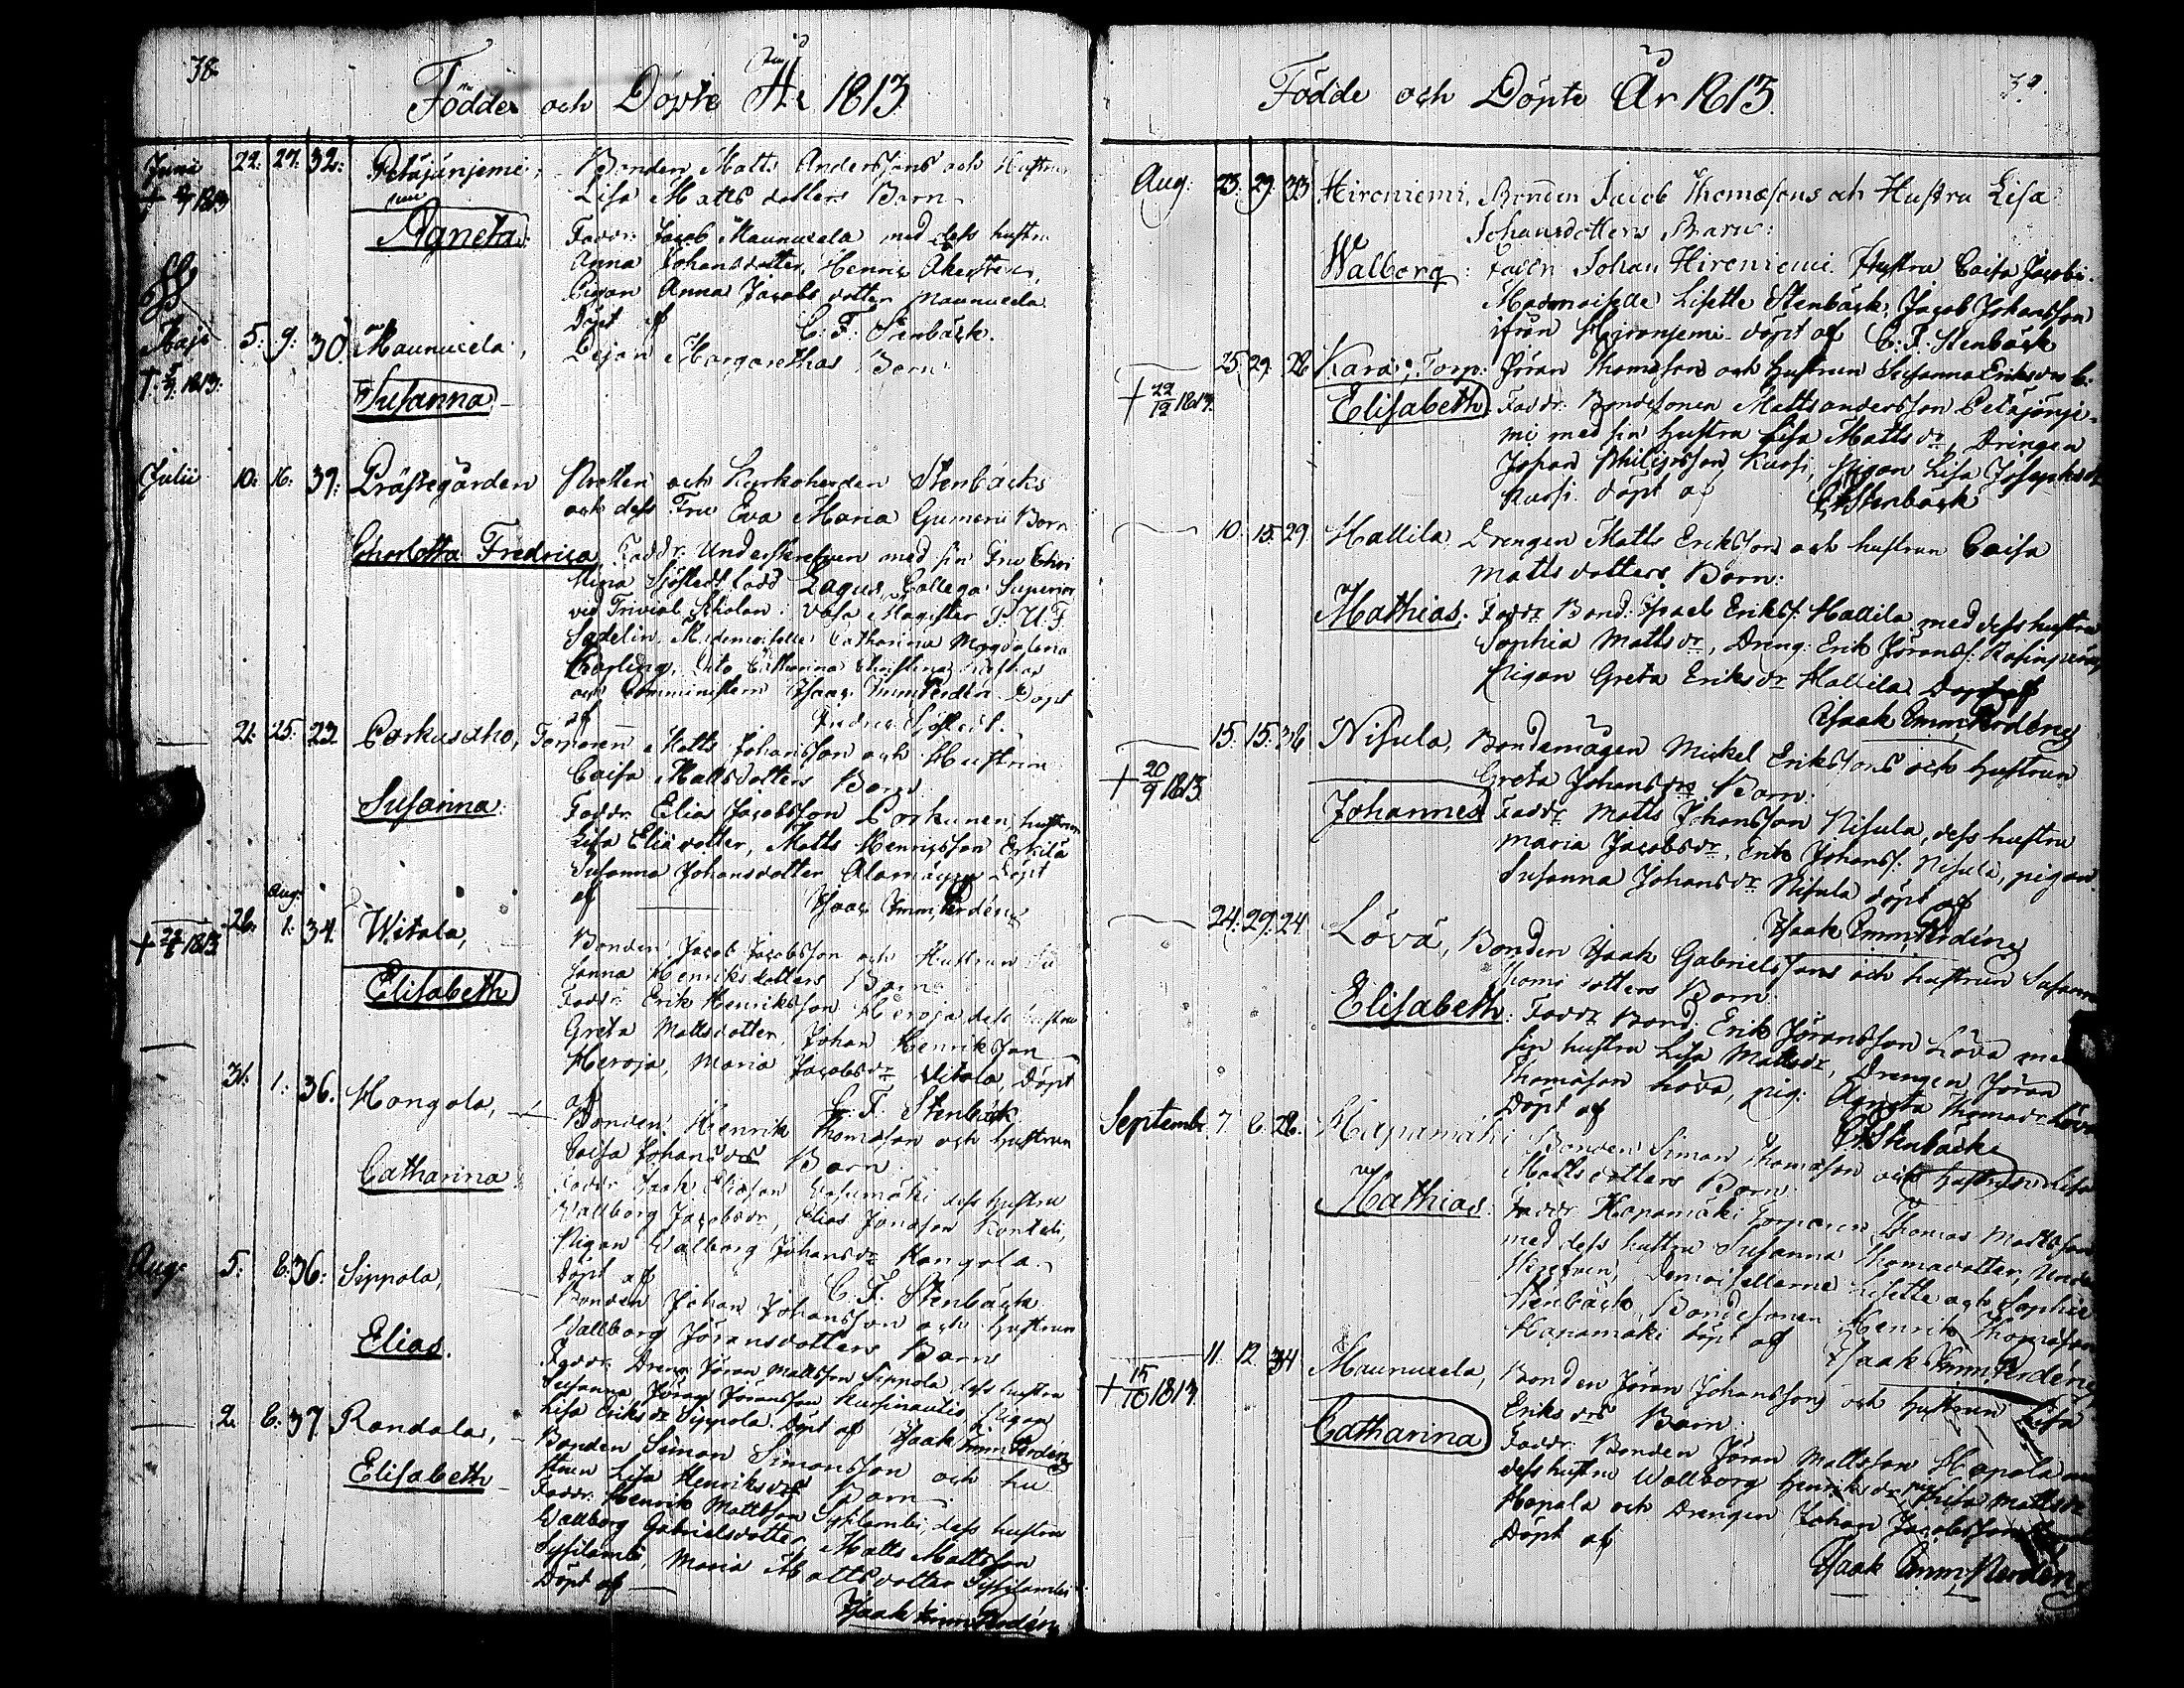 38.
Födde och Döpte År 1813.
Juni 22. 27. 32. Petäjänjemi, Bonden Matts Anderssons och Hustrun
1813 Lisa Matts dotters Barn
Agneta. Faddr. Jacob Maunucela med dess hustru
Anna Johansdotter, Henric
Pigan Anna Jacobs dotter Maunucela
Döpt af C: F: Stenbäck.
Maji 5. 9. 30 Maunucela, Pejan Margarethas Barn
1813. Susanna
Julii 10. 16. 39. Prästegården Prosten och Kyrkoherden Stenbäcks
och dess Fru Eva Maria Gumerii Barn
Charlotta Fredrica Faddr. Underskrefven med sin Fru Chri
stina Sjöstedt född Lagus, Collega Superior
vid Trivial Scholan i Vasa Magister P. U. F.
Sadelin, Mademoiselle Catharina Magdalena
Dito Catharina Christina
och Comministern Isaac Imm. Perdén Döpt
af Sjöstedt.
21. 25. 23 Corkusaho, Torparen Matts Johansson och Hustrun
Caisa Mattsdotters Barn
Susanna. Faddr. Elias Jacobsson Corkunen, hustrun
Lisa Eliædotter, Matts Henricsson Erkilä
Susanna Johansdotter Alamäyry Döpt
af Isaac Imm. Perdén
Aug.
26. 1. 34. Witala, Bonden Jacob Jacobsson och Hustrun Su
1813 sanna Henriksdotters Barn
Elisabeth Faddr. Erik Henriksson Heroja dess hustru
Greta Mattsdotter, Johan Henriksson
Heroja, Maria Jacobsdr Vitala, Döpt
af C: F: Stenbäck
31. 1. 36. Hongola, Bonden Henrik Thomasson och hustrun
Caisa Johansdrs Barn
Catharina. Faddr. Isaak Eliasson dess hustru
Wallborg Jacobsdr, Elias Jonasson Konteli,
Pigan Walborg Johansdr Hongola.
Döpt af C. F. Stenbäck
Aug: 5. 8. 36. Sippola, Bonden Johan Johansson och hustrun
Wallborg Jöransdotters Barn
Elias. Faddr. Dreng Jöran Mattsson Sippola, dess hustru
Susanna, Jöran Jöransson Pigan
Lisa Eriksdr Sippola. Döpt af Isaak Imm. Perdén
2. 8. 37. Randala, Bonden Simon Simonsson och hu
strun Lisa Henriksdrs Barn
Elisabeth Faddr. Henrik Mattsson Syssilambi dess hustru
Wallborg Gabrielsdotter, Matts Mattsson
Syssilambi, Maria Mattsdotter Syssilambi
Döpt af Isaak Imm. Perdén
39.
Födde och Döpte År 1813.
Aug: 23. 29. 33 Hironiemi, Bonden Jacob Thomæsons och Hustru Lisa
Johansdotters Barn:
Walborg: Faddr. Johan Hironiemi. Hustru Caisa Jacobs.
Mademoiselle Lisette Stenbäck, Jacob Johansson
ifrån Hironjemi döpt af C: F. Stenbäck
25. 29. 28 Kara, Torp: Jöran Thomasson och hustrun Susanna Eriksdrs b.
1813. Elisabeth. Faddr. Bondesonen Matts andersson Petäjänje-
mi med sin hustru Lisa Mattsdr, Drengen
Johan Philipsson Kursi, Pigan Lisa Josephsdr
Kursi. döpt af CFStenbäck
10. 15. 29 Hallila, Drengen Matts Eriksson och hustrun Caisa
Mattsdotters Barn:
Mathias. Faddr Bond: Isaak Erikss. Hallila med dess hustru
Sophia Mattsdr, Dreng: Erik Jöranss.
Pigan Greta Eriksdr Hallila Döpt af
Isaak Emm. Perdén
15. 15. 36 Nisula, Bondemågen Mickel Erikssons och hustrun
20/9 1813. Greta Johansdrs Barn.
Johannes Faddr Matts Johansson Nisula, dess hustru
Maria Jacobsdr, Erik Johanss. Nisula, pigan
Susanna Johansdr Nisula döpt af
Isaak Emm. Perdén
24. 29. 24 Lövä, Bonden Isaak Gabrielssons och hustrun Susanna
Thomædotters Barn
Elisabeth. Faddr Bond. Erik Jöransson Lövä med
sin hustru Lisa Mattsdr, Drengen Jöran
Thomasson Lövä, pig: Agneta Thomædr Lövä
Döpt af CFStenbäck
Septembr 7. 8. 28. Hapamäki Bonden Simon Thomasson och hustrun Lisa
Mattsdotters Barn
Mathias. Faddr. Hapamäki Torparen Thomas Mattsson
med dess hustru Susanna Thomædotter, Under
skrefven, Demoisellerne Lisette och Sophia
Stenbäck, Bondesonen Henrik Thomasson
Hapamäki döpt af Isaak Emm. Perdén
11. 12. 34 Maunucela, Bonden Jöran Johansson och hustrun Lisa
15/10 1813. Eriksdrs Barn.
Catharina Faddr. Bonden Jöran Mattsson Hopola
dess hustru Wallborg Henriksdr, Lisa Mattsdr
Hopola och Drengen Johan Jacobsson
Döpt af
Isaak Emm. Perdén